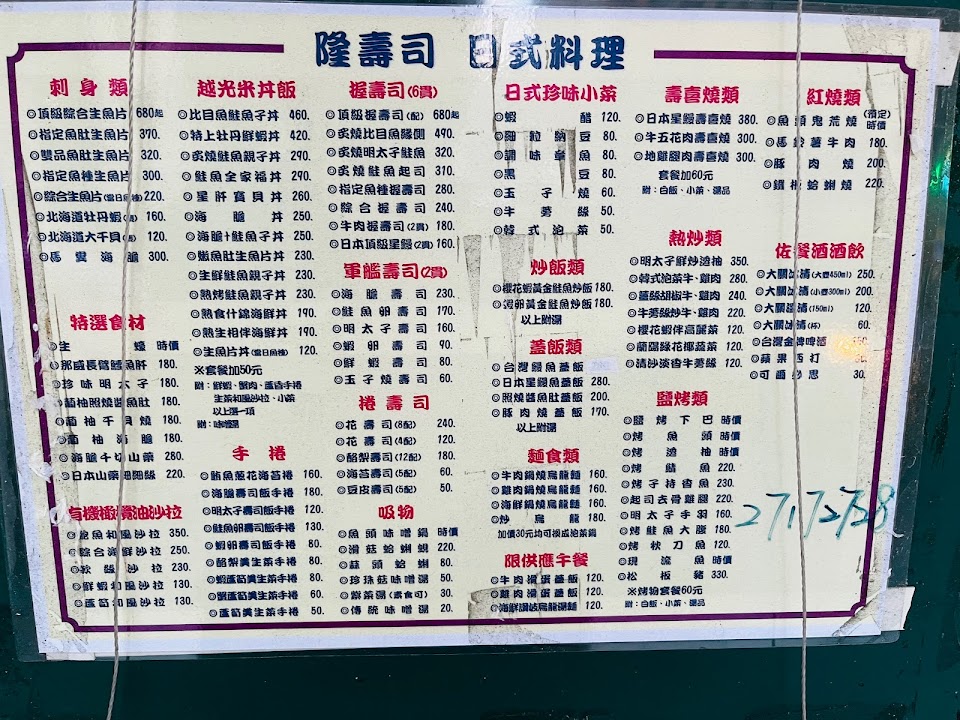 隆壽司 日式料理
刺身類
◎頂級綜合生魚片 680起
◎指定魚肚生魚片 370.
◎雙品魚肚生魚片 320.
◎指定魚種生魚片 300.
◎綜合生魚片(當日魚種) 220.
◎北海道牡丹蝦 160.
◎北海道大干貝 120.
◎馬糞海膽 300.
特選食材
◎生蠔 時價
◎挪威長臂鱈魚肝 180.
◎珍味明太子 180.
◎柚照燒醬魚肚 180.
◎柚干貝燒 180.
◎柚海膽 180.
◎海膽千切山藥 280.
◎日本山藥細麵 220.
有機橄欖油沙拉
◎和風沙拉 350.
◎綜合海鮮沙拉 250.
◎軟殼沙拉 230.
◎鮮蝦和風沙拉 130.
◎蘆筍和風沙拉 130.
越光米丼飯
◎比目魚鮭魚子丼 460.
◎特上牡丹鮮蝦丼 420.
◎炙燒鮭魚親子丼 290.
◎鮭魚全家福丼 290.
◎星肝寶貝丼 260.
◎海膽丼 250.
◎海膽+鮭魚子丼 250.
◎嫩魚肚生魚片丼 230.
◎生鮮鮭魚親子丼 230.
◎熟烤鮭魚親子丼 230.
◎熟食什錦海鮮丼 190.
◎熟生相伴海鮮丼 190.
◎生魚片丼(當日魚種) 120.
※套餐加50元
附：鮮蝦、蟹肉、蘆筍手捲
生菜和風沙拉、小菜
以上選一項
附：味噌湯
手捲
◎鮪魚蔥花海苔捲 160.
◎海膽壽司飯手捲 160.
◎明太子壽司飯手捲 120.
◎鮭魚卵壽司飯手捲 130.
◎蝦卵壽司飯手捲 80.
◎酪梨美生菜手捲 80.
◎蝦蘆筍美生菜手捲 80.
◎蟹蘆筍美生菜手捲 60.
◎蘆筍美生菜手捲 50.
握壽司(6貫)
◎頂級握壽司(配) 680起
◎炙燒比目魚緣側 490.
◎炙燒明太子鮭魚 320.
◎炙燒鮭魚起司 310.
◎指定魚種握壽司 280.
◎綜合握壽司 240.
◎牛肉握壽司(2貫) 180.
◎日本頂級星鰻(2貫) 160.
軍艦壽司(2貫)
◎海膽壽司 230.
◎鮭魚卵壽司 170.
◎明太子壽司 160.
◎蝦卵壽司 90.
◎鮮蝦壽司 80.
◎玉子燒壽司 60.
捲壽司
◎花壽司(8配) 240.
◎花壽司(4配) 120.
◎酪梨壽司(12配) 180.
◎海苔壽司(5配) 60.
◎豆皮壽司(5配) 50.
吸物
◎魚頭味噌鍋 時價
◎滑菇蛤蜊蜆 220.
◎蒜頭蛤蜊 80.
◎珍珠菇味噌湯 50.
◎鮮菜湯(素食可) 30.
◎傳統味噌湯 20.
日式珍味小菜
◎蝦醋 120.
◎細粒納豆 80.
◎調味章魚 80.
◎黑豆 80.
◎玉子燒 60.
◎牛蒡絲 50.
◎韓式泡菜 50.
炒飯類
◎櫻花蝦黃金鮭魚炒飯 180.
◎蝦卵黃金鮭魚炒飯 180.
以上附湯
蓋飯類
◎台灣鰻魚蓋飯
◎日本星鰻魚蓋飯 280.
◎照燒醬魚肚蓋飯 200.
◎豚肉燒蓋飯 170.
以上附湯
麵食類
◎牛肉鍋燒烏龍麵 160.
◎雞肉鍋燒烏龍麵 160.
◎海鮮鍋燒烏龍麵 160.
◎炒烏龍 180.
加價30元均可換成泡菜鍋
限供應午餐
◎牛肉滑蛋蓋飯 120.
◎雞肉滑蛋蓋飯 120.
◎海鮮讚岐烏龍湯麵 120.
壽喜燒類
◎日本星鰻壽喜燒 380.
◎牛五花肉壽喜燒 300.
◎地雞腿肉壽喜燒 300.
套餐加60元
附：白飯、小菜、湯品
熱炒類
◎明太子鮮炒透抽 350.
◎韓式泡菜牛、雞肉 280.
◎蔥絲胡椒牛、雞肉 240.
◎牛蒡絲炒牛、雞肉 220.
◎櫻花蝦伴高麗菜 120.
◎蘭陽絲花椰菜 120.
◎清沙淡香牛蒡絲 120.
鹽烤類
◎鹽烤下巴 時價
◎烤魚頭 時價
◎烤透抽 時價
◎烤鯖魚 220.
◎烤子持香魚 230.
◎起司去骨雞腿 220.
◎明太子手羽 160.
◎烤鮭魚大腹 180.
◎烤秋刀魚 120.
◎現流魚 時價
◎松板豬 330.
※烤物套餐60元
附：白飯、小菜、湯品
紅燒類
◎魚頭鬼荒燒(預定) 時價
◎馬鈴薯牛肉 180.
◎豚肉燒 200.
◎鐵板蛤蜊燒 220.
佐餐酒酒飲
◎大關冰清(大壺450ml) 250.
◎大關冰清(小壺300ml) 200.
◎大關溫清(150ml) 120.
◎大關冰清(杯) 60.
◎台灣金牌啤酒
◎蘋果西打 30.
◎可爾必思 30.
27172728